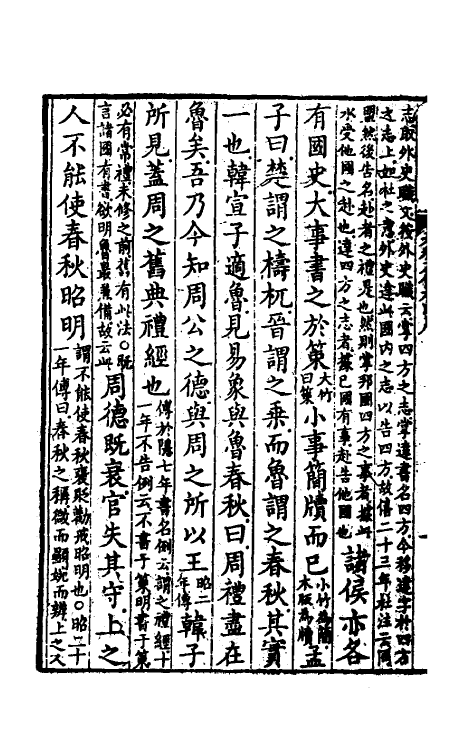 志取外史職文後外史職云掌四方之志掌達書名四方今移達字於四方
之志上如杜之意外史達此國內之志以告四方故僖二十三年杜注云同
盟然後告名赴者之禮是也然則掌邦國四方之事者據此
水受他國之赴也達四方之志者據己國有事赴告他國也
諸侯亦各
有國史大事書之於策大竹曰策小事簡牘而已小竹為簡木版為牘孟
子曰楚謂之檮杌晉謂之乘而魯謂之春秋其實
一也韓宣子適魯見易象與魯春秋曰周禮盡在
魯矣吾乃今知周公之德與周之所以王昭二年傳韓子
所見蓋周之舊典禮經也傳於隱七年書名例云謂之禮經十一年不告例云不書于策明書于策
必有常禮未修之前舊有此法○既言諸國有書欲明魯最兼備故云此周德既衰官失其守上之
人不能使春秋昭明謂不能使春秋褒貶勸戒昭明也○昭三十一年傳曰春秋之稱微而顯婉而辨上之人